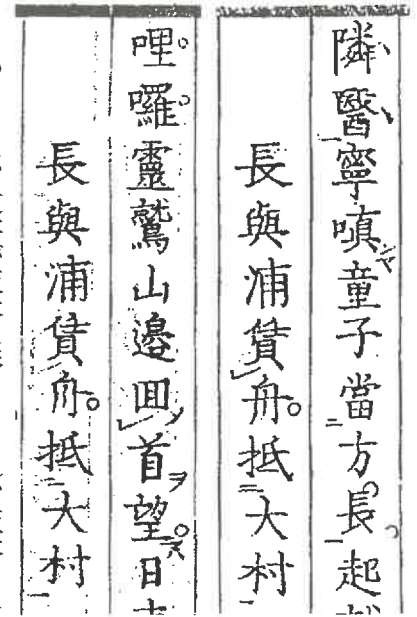 隣醫寧嗔童子當方長起
長與浦賃舟抵大村
哩囉靈鷲山邊囬首望日
長與浦賃舟抵大村